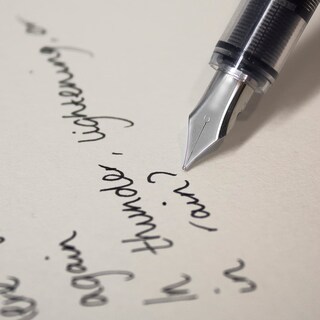 again
In thunder, lightening, or
in rain?